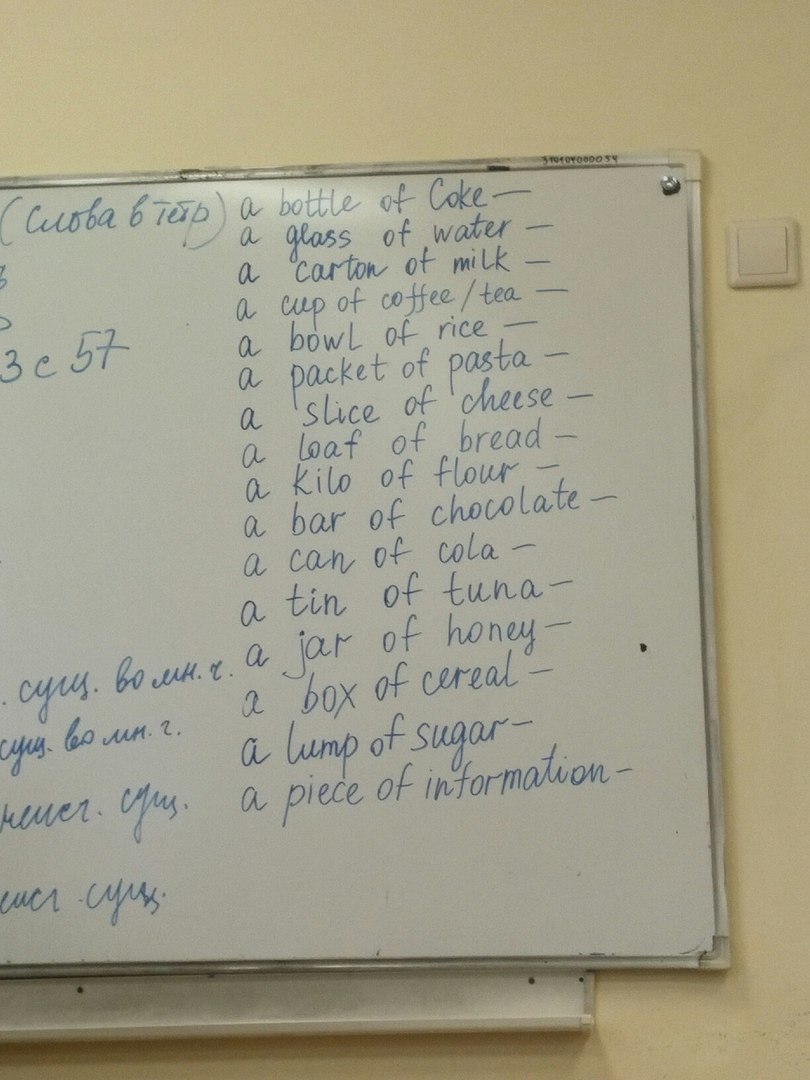 314104000054
(слова в тетр)
3 с 57
a bottle of Coke —
a glass of water —
a carton of milk —
a cup of coffee / tea —
a bowl of rice —
a packet of pasta —
a slice of cheese —
a loaf of bread —
a kilo of flour —
a bar of chocolate —
a can of cola —
a tin of tuna —
a jar of honey —
a box of cereal —
a lump of sugar —
a piece of information —
. сущ. во мн. ч.
сущ. во мн. ч.
неисч. сущ.
сущ.